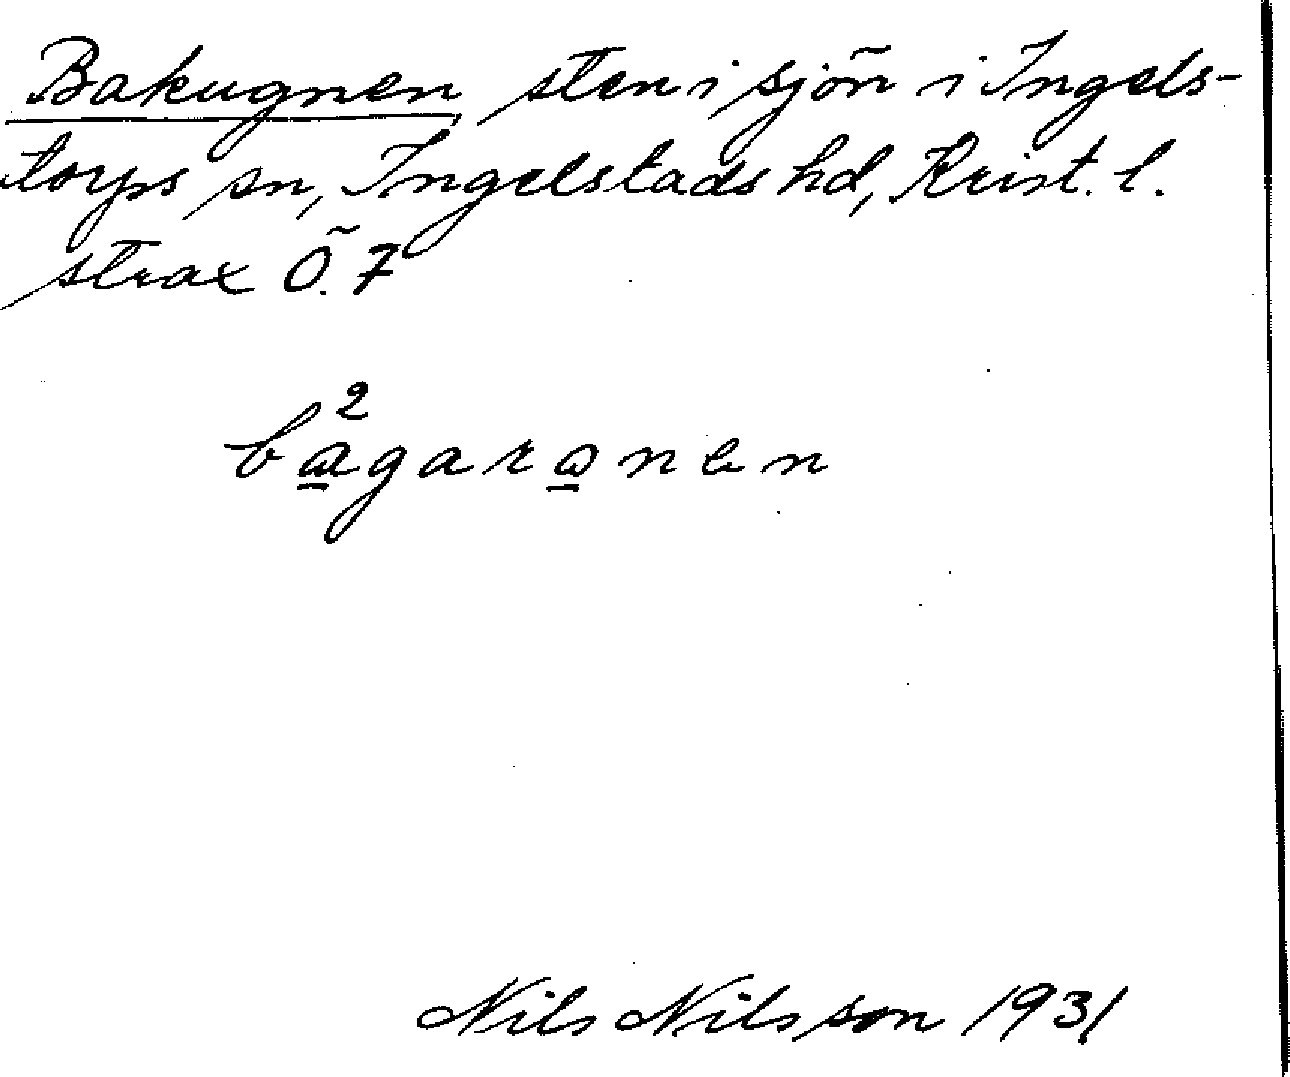 Bakugnen, sten i sjön i Ingels-
torps sn, Ingelstads hd, Krist. l.
strax Ö. 7
2
bagaronen
Nils Nilsson 1931